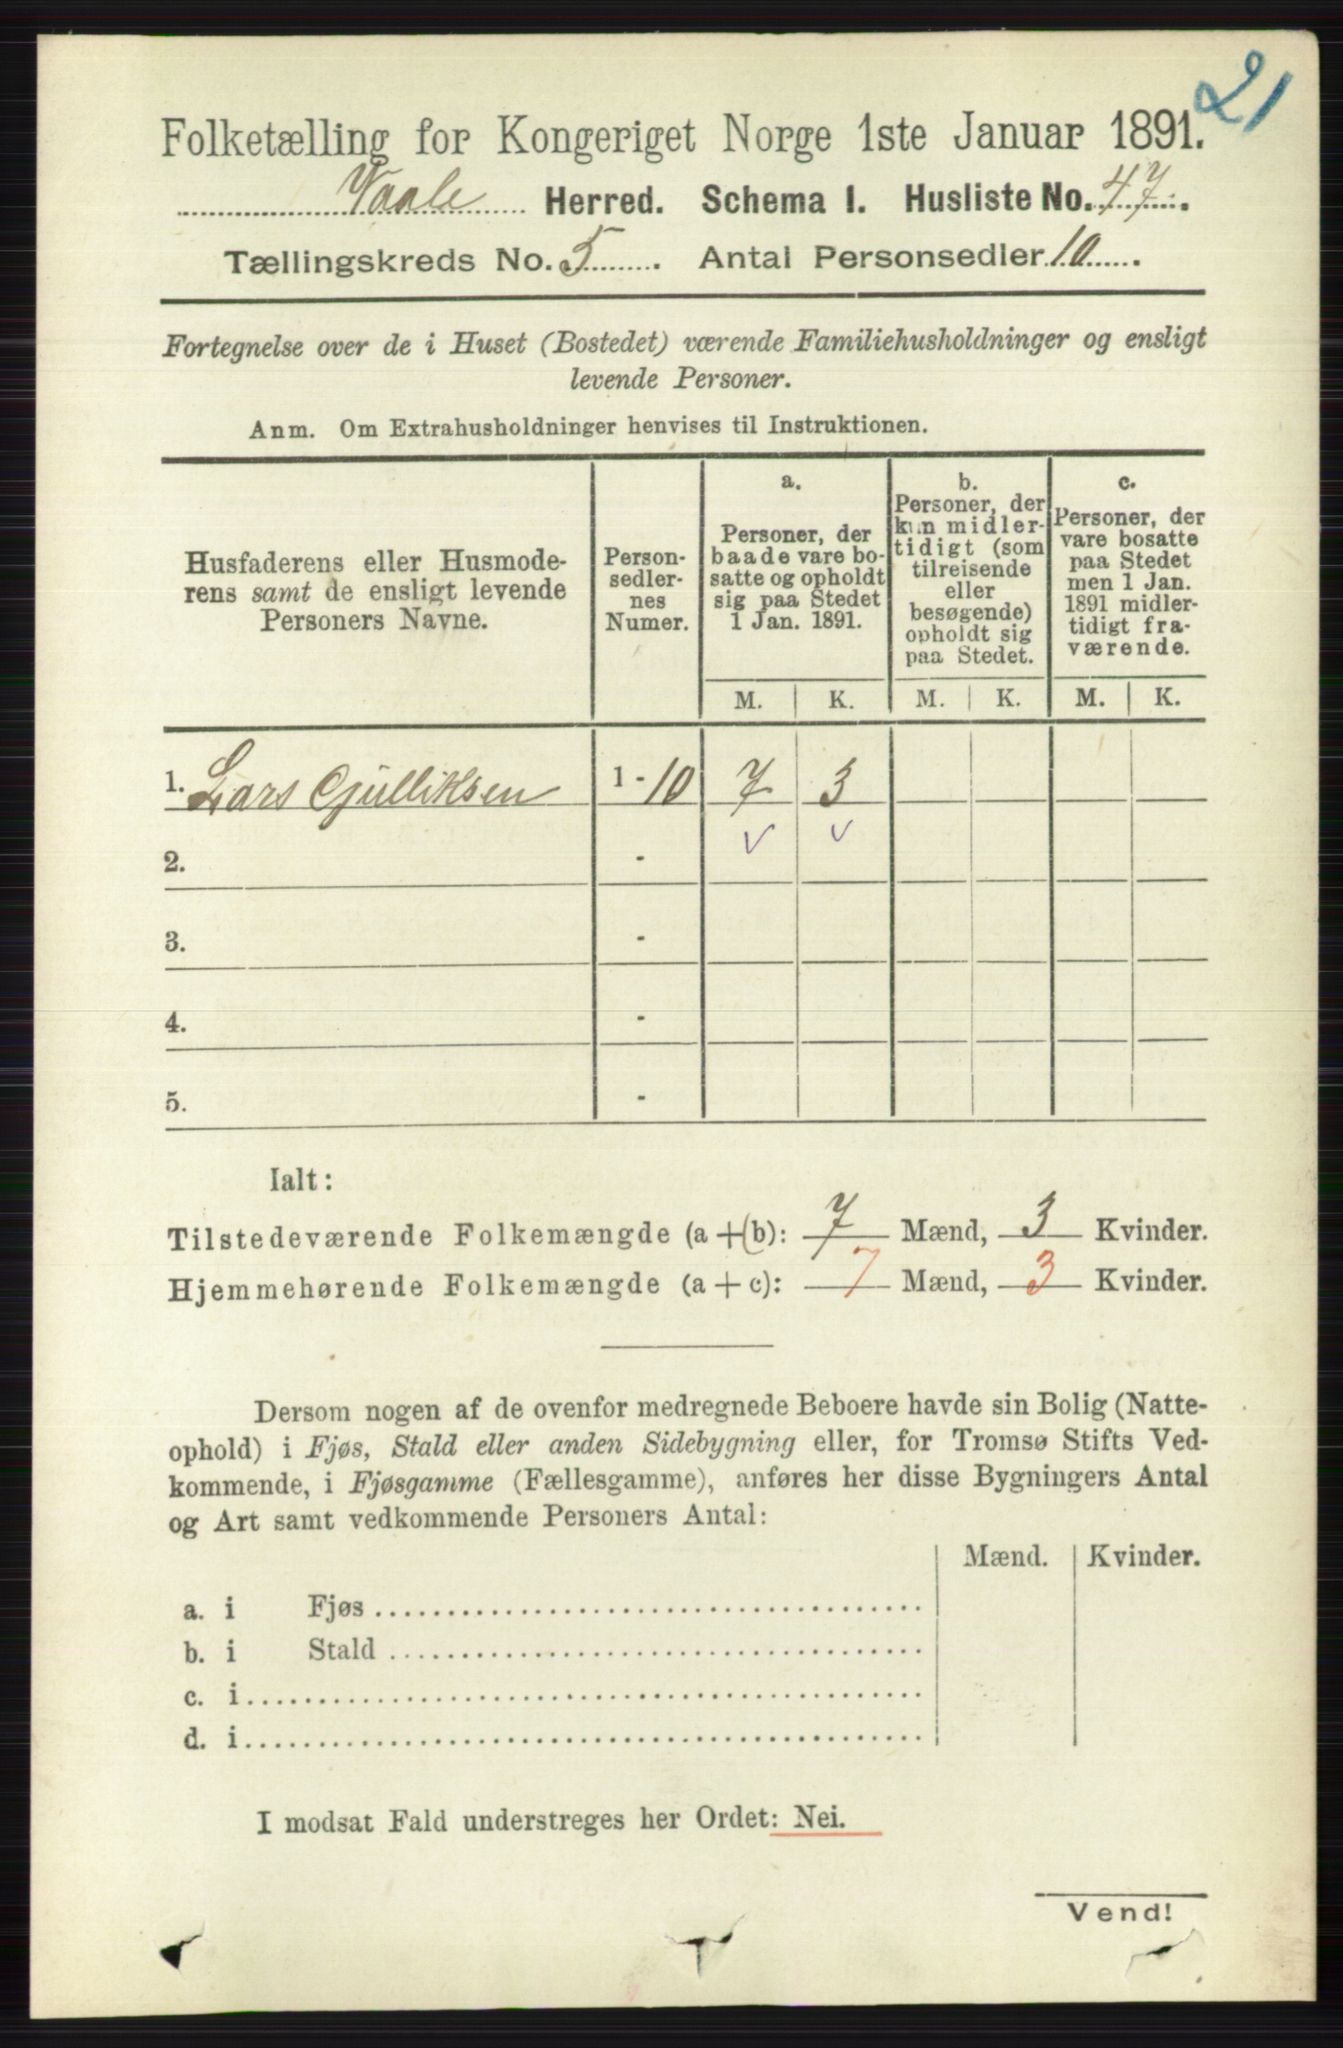 21
Folketælling for Kongeriget Norge 1ste Januar 1891.
Vaale Herred. Schema I. Husliste No. 47.
Tællingskreds No. 5. Antal Personsedler 10.
Fortegnelse over de i Huset (Bostedet) værende Familiehusholdninger og ensligt
levende Personer.
Anm. Om Extrahusholdninger henvises til Instruktionen.
Husfaderens eller Husmode-
rens samt de ensligt levende
Personers Navne.
Person-
sedler-
nes
Numer.
a.
Personer, der
baade vare bo-
satte og opholdt
sig paa Stedet
1 Jan. 1891.
b.
Personer, der
kun midler-
tidigt (som
tilreisende
eller
besøgende)
opholdt sig
paa Stedet.
c.
Personer, der
vare bosatte
paa Stedet
men 1 Jan.
1891 midler-
tidigt fra-
værende.
M. K. M. K. M. K.
1. Lars Gulliksen 1-10 7 3
2. - v v
3. -
4. -
5. -
Ialt:
Tilstedeværende Folkemængde (a+(b): 7 Mænd, 3 Kvinder.
Hjemmehørende Folkemængde (a+c): 7 Mænd, 3 Kvinder.
Dersom nogen af de ovenfor medregnede Beboere havde sin Bolig (Natte-
ophold) i Fjøs, Stald eller anden Sidebygning eller, for Tromsø Stifts Ved-
kommende, i Fjøsgamme (Fællesgamme), anføres her disse Bygningers Antal
og Art samt vedkommende Personers Antal:
Mænd. Kvinder.
a. i Fjøs
b. i Stald
c. i
d. i
I modsat Fald understreges her Ordet: Nei.
Vend!